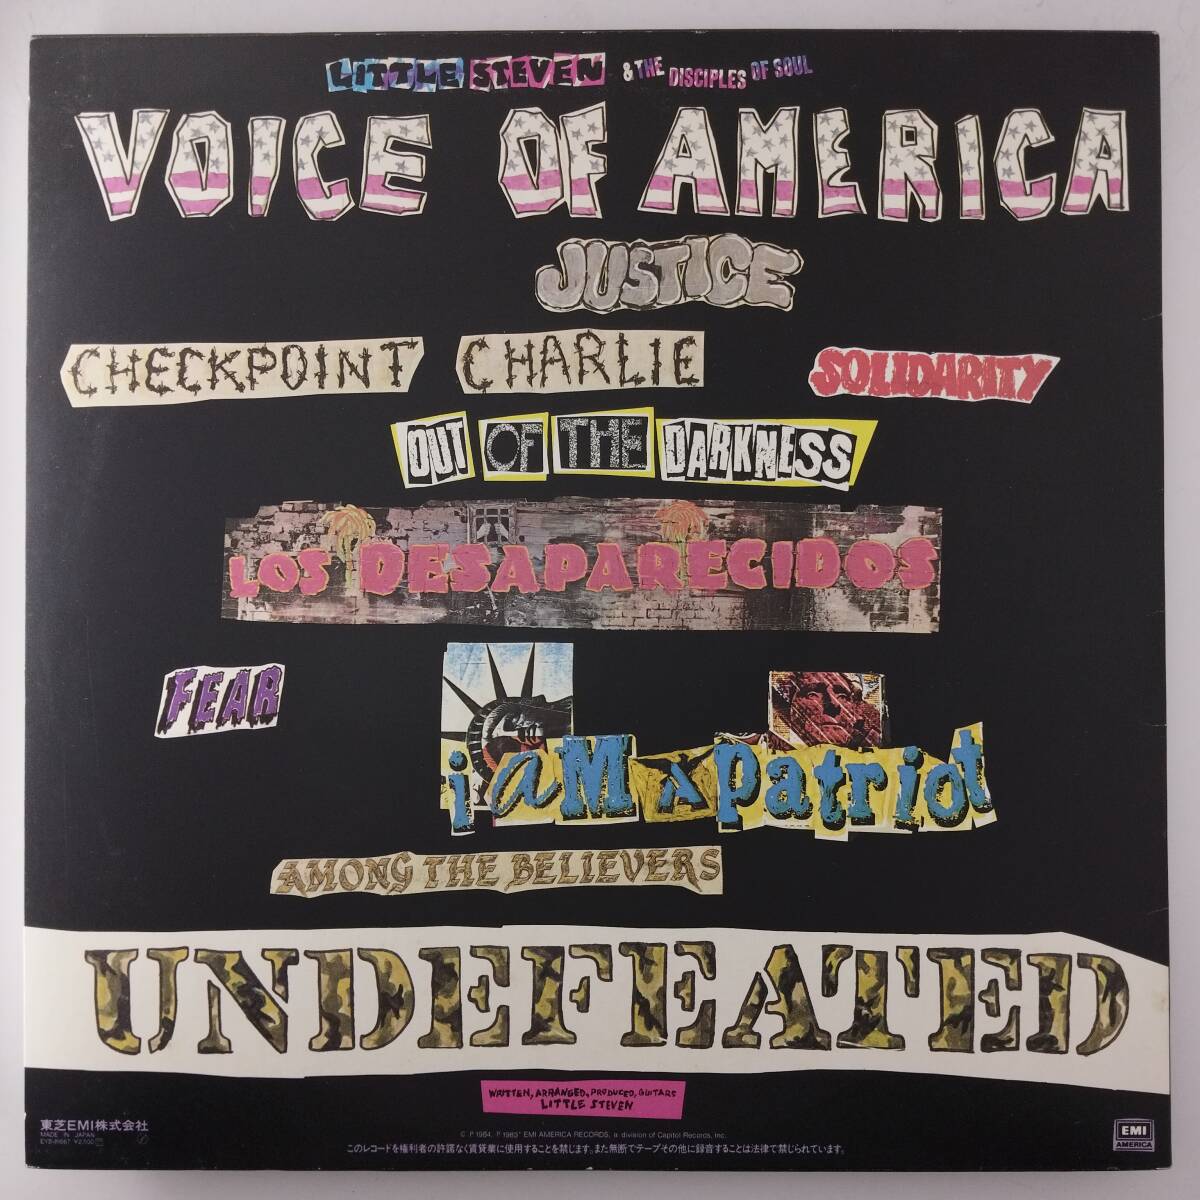 LITTLE STEVEN & THE DISCIPLES OF SOUL
VOICE OF AMERICA
JUSTICE
CHECKPOINT CHARLIE
SOLIDARITY
OUT OF THE DARKNESS
LOS DESAPARECIDOS
FEAR
i aM A patriot
AMONG THE BELIEVERS
UNDEFEATED
WRITTEN, ARRANGED, PRODUCED, GUITARS
LITTLE STEVEN
東芝EMI株式会社
MADE IN JAPAN
¥2,500
EMI
AMERICA
℗ 1984, ℗ 1983* EMI AMERICA RECORDS, a division of Capitol Records, Inc.
このレコードを権利者の許諾なく賃貸業に使用することを禁じます。また無断でテープその他に録音することは法律で禁じられています。